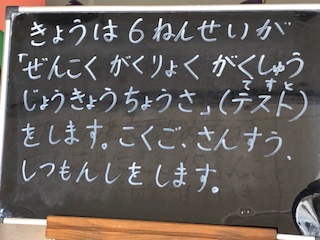 きょうは6ねんせいが
「ぜんこくがくりょくがくしゅう
じょうきょうちょうさ」(テスト)
てすと
をします。こくご、さんすう、
しつもんしをします。